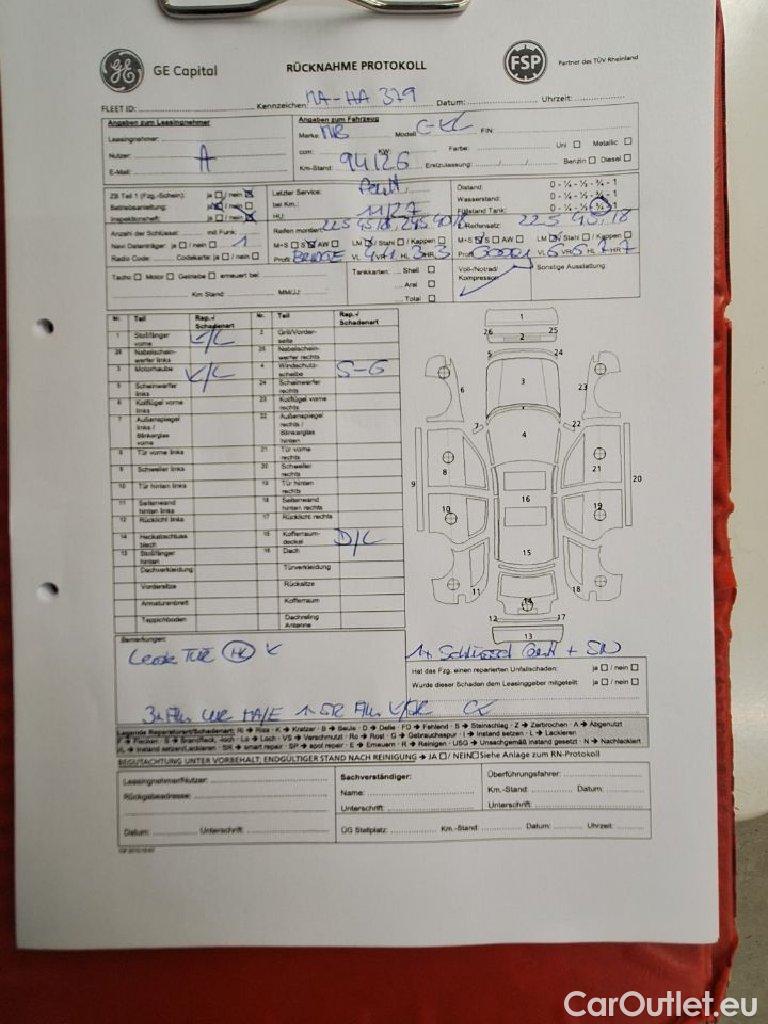 GE Capital
RÜCKNAHME PROTOKOLL
FSP
Partner des TÜV Rheinland
FLEET ID: Kennzeichen: MA-HA 379 Datum: Uhrzeit:
Angaben zum Leasingnehmer
Angaben zum Fahrzeug
Leasingnehmer:
Marke: MB Modell: FIN:
Nutzer: A
ccm: KW: Farbe: Uni Metallic
E-Mail:
Km-Stand: 94126 Erstzulassung: Benzin Diesel
ZB Teil 1 (Fzg.-Schein): ja / nein
Betriebsanleitung: ja / nein
Inspektionsheft: ja / nein
Anzahl der Schlüssel: mit Funk:
Navi Datenträger: ja / nein 1
Radio Code: Codekarte: ja / nein
Letzter Service:
bei Km.:
HU: 11/27
Reifen montiert: 225 45 18, 245 40 18
M+S S AW LM / Stahl / Kappen
Profil VL VR HL HR 3
Ölstand: 0 - ¼ - ½ - ¾ - 1
Wasserstand: 0 - ¼ - ½ - ¾ - 1
Füllstand Tank: 0 - ¼ - ½ - ¾ - 1
Reifensatz: 225 45 18
M+S S AW LM / Stahl / Kappen
Profil VL VR HL HR 7
Tacho Motor Getriebe erneuert bei
Km Stand: MM/JJ:
Tankkarten: Shell
Aral
Total
Voll-/Notrad/
Kompressor
Sonstige Ausstattung:
Nr. Teil Rep.-/ Schadenart Nr. Teil Rep.-/ Schadenart
1 Stoßfänger vorne K/L 2 Grill/Vorderseite
26 Nebelscheinwerfer links 25 Nebelscheinwerfer rechts
3 Motorhaube K/L 4 Windschutzscheibe S-G
5 Scheinwerfer links 24 Scheinwerfer rechts
6 Kotflügel vorne links 23 Kotflügel vorne rechts
7 Außenspiegel links / Blinkerglas vorne 22 Außenspiegel rechts / Blinkerglas hinten
8 Tür vorne links 21 Tür vorne rechts
9 Schweller links 20 Schweller rechts
10 Tür hinten links 19 Tür hinten rechts
11 Seitenwand hinten links 18 Seitenwand hinten rechts
12 Rücklicht links 17 Rücklicht rechts
14 Heckabschlussblech 15 Kofferraumdeckel D/L
13 Stoßfänger hinten 16 Dach
Dachverkleidung Türverkleidung
Vordersitze Rücksitze
Armaturenbrett Kofferraum
Teppichboden Dachreling Antenne
1
26 25
2
5 24
3
6 23
7 22
4
8 21
9 20
16
10 19
15
11 18
14
12 17
13
Bemerkungen:
K
1x Schlüssel + SN
Hat das Fzg. einen reparierten Unfallschaden: ja / nein
Wurde dieser Schaden dem Leasinggeber mitgeteilt: ja / nein
Legende Reparaturart/Schadenart: R → Riss · K → Kratzer · B → Beule · D → Delle · FD → Fehlend · S → Steinschlag · Z → Zerbrochen · A → Abgenutzt
F → Flecken · BL → Brandfleck, -loch · Lo → Loch · VS → Verschmutzt · Ro → Rost · G → Gebrauchsspur · I → Instand setzen · L → Lackieren
I/L → Instand setzen/Lackieren · SR → smart repair · SP → spot repair · E → Erneuern · R → Reinigen · USG → Unsachgemäß instand gesetzt · N → Nachlackiert
BEGUTACHTUNG UNTER VORBEHALT; ENDGÜLTIGER STAND NACH REINIGUNG → JA / NEIN Siehe Anlage zum RN-Protokoll
Leasingnehmer/Nutzer:
Rückgabeadresse:
Datum: Unterschrift:
Sachverständiger:
Name:
Unterschrift:
Überführungsfahrer:
Km.-Stand: Datum:
Unterschrift:
ÜG Stellplatz: Km.-Stand: Datum: Uhrzeit:
CarOutlet.eu